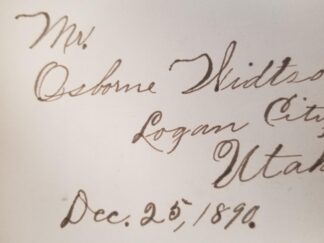 Mr.
Osborne Widtso
Logan City
Utah
Dec. 25, 1890.